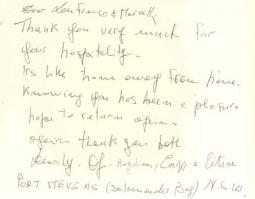 Dear Lanfranco &
Thank you very much for
your hospitality.
Its like home away from home.
Knowing you has been a pleasure
hope to return again.
again thank you both
PORT STEVENS (Salamander Bay) N.S.W